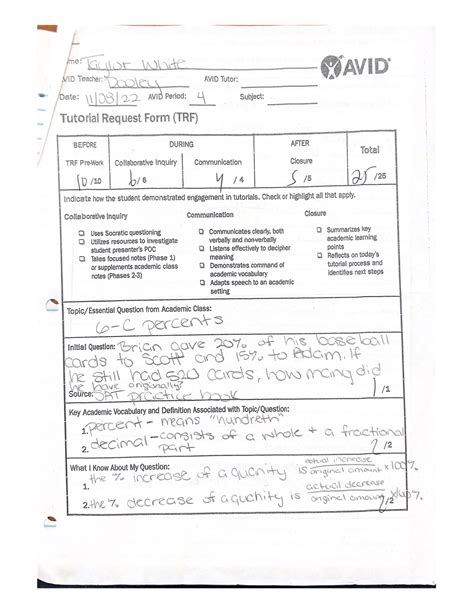 Name: Taylor White
AVID
AVID Teacher: Dooley AVID Tutor:
Date: 11/08/22 AVID Period: 4 Subject:
Tutorial Request Form (TRF)
BEFORE DURING AFTER Total
TRF Pre-Work Collaborative Inquiry Communication Closure
10 /10 6 /6 4 /4 5 /5 25 /25
Indicate how the student demonstrated engagement in tutorials. Check or highlight all that apply.
Collaborative Inquiry
Uses Socratic questioning
Utilizes resources to investigate
student presenter's POC
Takes focused notes (Phase 1)
or supplements academic class
notes (Phases 2-3)
Communication
Communicates clearly, both
verbally and nonverbally
Listens effectively to decipher
meaning
Demonstrates command of
academic vocabulary
Adapts speech to an academic
setting
Closure
Summarizes key
academic learning
points
Reflects on today's
tutorial process and
identifies next steps
Topic/Essential Question from Academic Class:
6-C percents
Initial Question: Brian gave 20% of his baseball
cards to Scott and 15% to Adam. If
he still had 520 cards, how many did
he have originally?
Source: SAT practice book /1
Key Academic Vocabulary and Definition Associated with Topic/Question:
1. percent - means "hundreth"
2. decimal - consists of a whole + a fractional
part /2
What I Know About My Question:
1. the % increase of a quantity is actual increase / original amount x 100%
2. the % decrease of a quantity is actual decrease / original amount x 100%.
/2